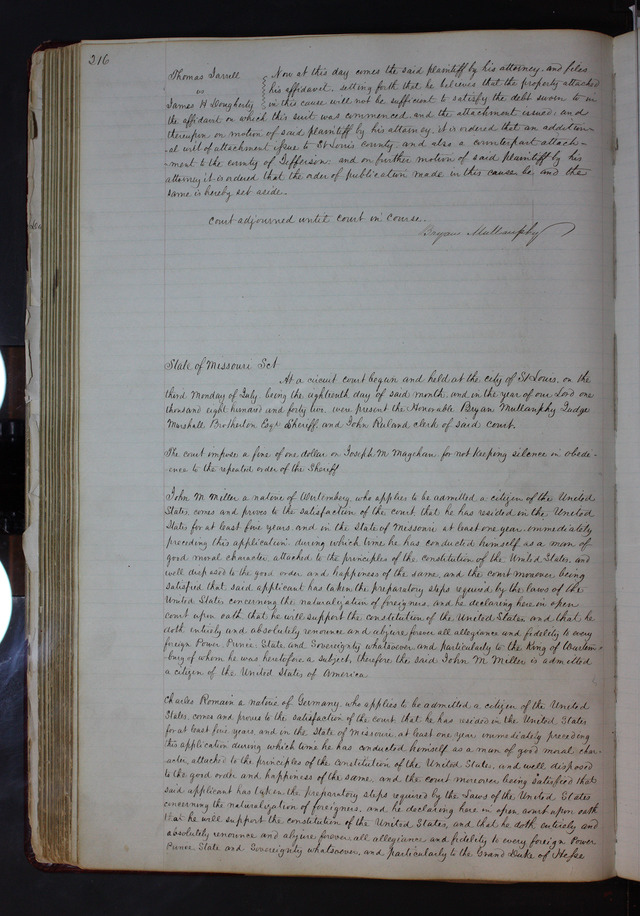 216
Thomas Jarrell Now at this day comes the said plaintiff by his attorney, and files
vs his affidavit, setting forth that he believes that the property attached
James H Dougherty in this cause will not be sufficient to satisfy the debt sworn to in
the affidavit on which this suit was commenced, and the attachment issued, and
thereupon on motion of said plaintiff by his attorney, it is ordered that an addition-
al writ of attachment issue to St Louis County, and also a counterpart attach-
-ment to the county of Jefferson: and on further motion of said plaintiff by his
attorney it is ordered that the order of publication made in this cause be and the
same is hereby set aside.
Court adjourned until court in course.
Bryan Mullanphy
State of Missouri Sct
At a circuit court begun and held at the city of St Louis, on the
third Monday of July, being the eighteenth day of said month, and in the year of our Lord one
thousand eight hundred and forty two, were present the Honorable Bryan Mullanphy Judge
Marshall Brotherton Esqr Sheriff, and John Ruland clerk of said court.
The court impose a fine of one dollar on Joseph M Magehan for not keeping silence in obedi-
ence to the repeated order of the Sheriff
John M. Miller a native of Wirtemberg, who applies to be admitted a citizen of the United
States, comes and proves to the satisfaction of the court, that he has resided in the United
States for at least five years, and in the State of Missouri at least one year, immediately
preceding this application, during which time he has conducted himself as a man of
good moral character, attached to the principles of the constitution of the United States, and
well disposed to the good order and happiness of the same, and the court moreover being
satisfied that said applicant has taken the preparatory steps required by the laws of the
United States concerning the naturalization of foreigners, and he declaring here in open
court upon oath, that he will support the constitution of the United States and that he
doth entirely and absolutely renounce and abjure forever all allegiance and fidelity to every
foreign Power, Prince, State and Sovereignty whatsoever, and particularly to the King of Wurtem-
burg of whom he was heretofore a subject, therefore the said John M. Miller is admitted
a citizen of the United States of America
Charles Romain a native of Germany, who applies to be admitted a citizen of the United
States, comes and proves to the satisfaction of the court, that he has resided in the United States
for at least five years, and in the State of Missouri, at least one year immediately preceding
this application during which time he has conducted himself as a man of good moral char-
acter, attached to the principles of the Constitution of the United States, and well disposed
to the good order and happiness of the same, and the court moreover being satisfied that
said applicant has taken the preparatory steps required by the Laws of the United States
concerning the naturalization of foreigners, and he declaring here in open court upon oath
that he will support the constitution of the United States, and that he doth entirely and
absolutely renounce and abjure forever all allegiance and fidelity to every foreign Power
Prince State and Sovereignty whatsoever, and particularly to the Grand Duke of Hesse